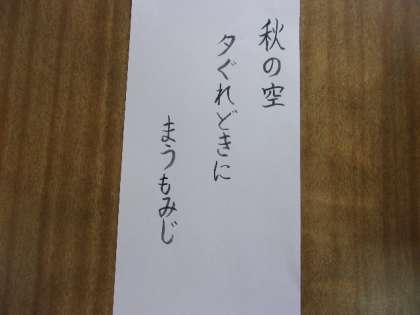 秋の空
夕ぐれどきに
まうもみじ